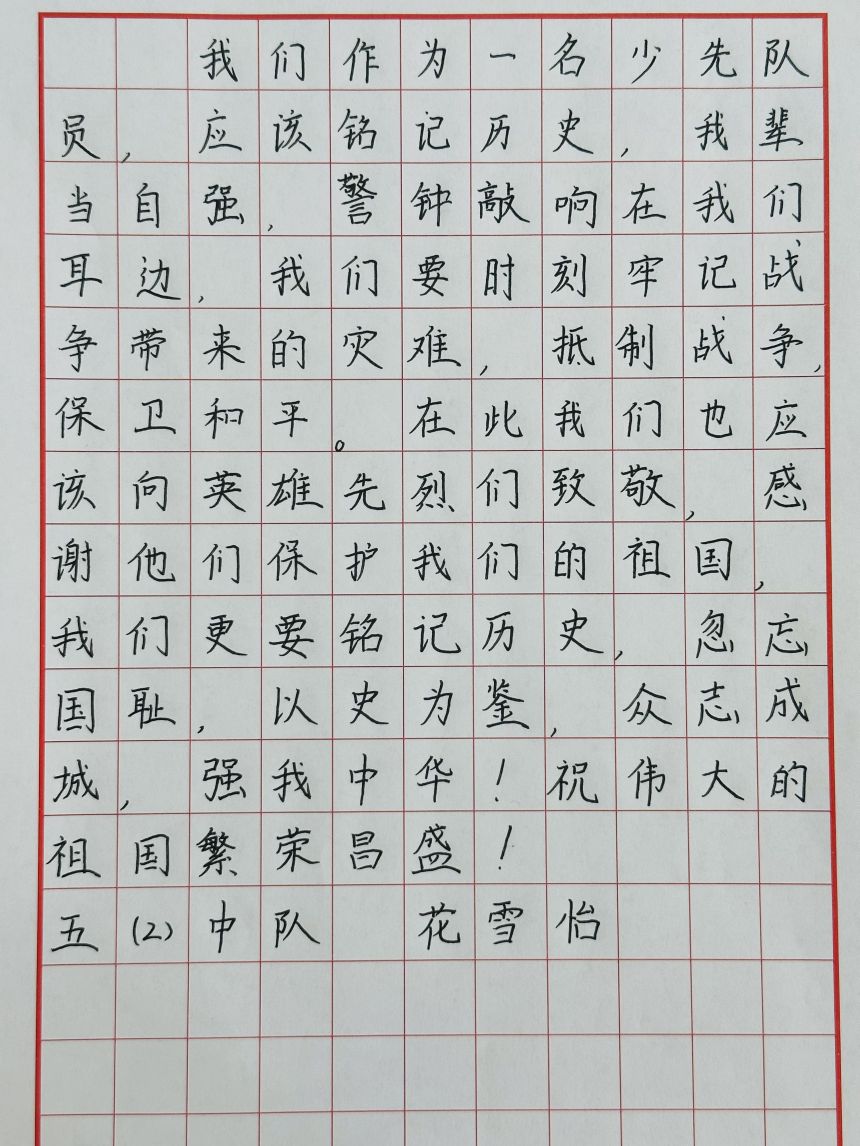 我们作为一名少先队
员，应该铭记历史，我辈
当自强，警钟敲响在我们
耳边，我们要时刻牢记战
争带来的灾难，抵制战争，
保卫和平。在此我们也应
该向英雄先烈们致敬，感
谢他们保护我们的祖国，
我们更要铭记历史，忽忘
国耻，以史为鉴，众志成
城，强我中华！祝伟大的
祖国繁荣昌盛！
五(2)中队 花雪怡